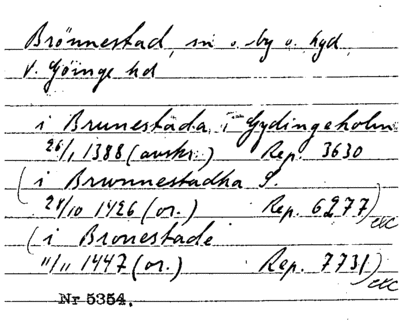 Brönnestad, sn o. by o. hgd
V. Göinge hd
i Brunestada i Gydingeholm
26/1 1388 (avskr.) Rep. 3630
(i Brwnnestadha S.
24/10 1426 (or.) Rep. 6277) etc
(i Bronestade
11/11 1447 (or.) Rep. 7731) etc
Nr 5354.